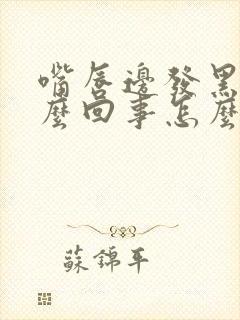 嘴唇邊發黑
麼回事怎麼
蘇錦平